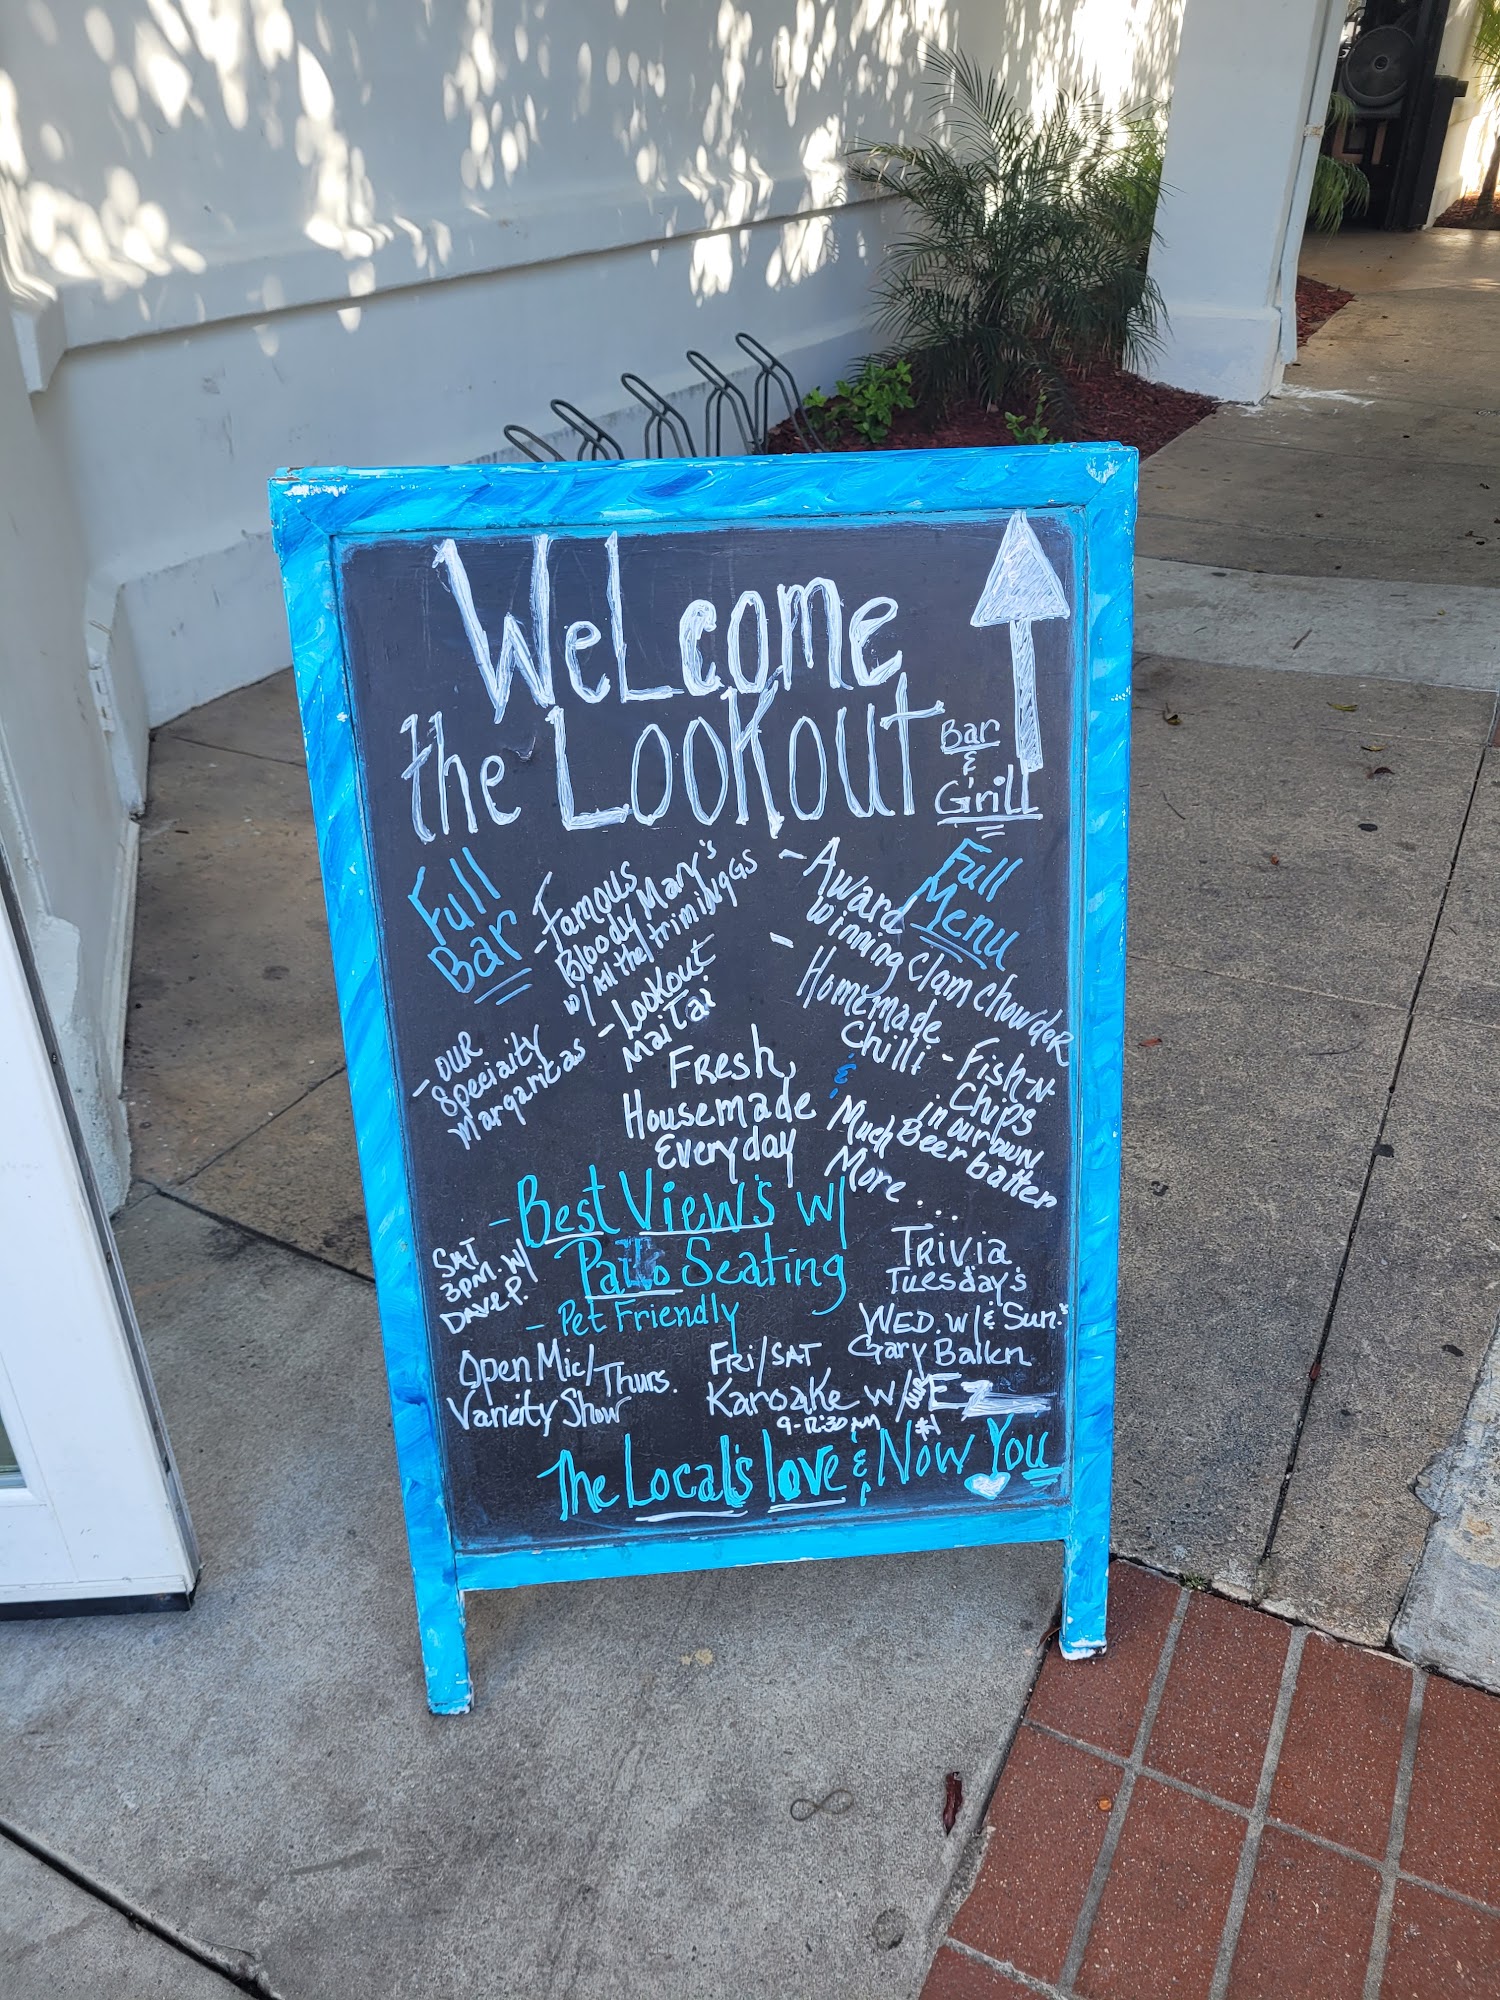 WeLcome
the LOOKOUT
Bar
&
GriLL
Full
Bar
- Famous
Bloody Mary's
w/ All the trimingGS
- LOOKOUT
Mai Tai
- OUR
Speciaity
Margaritas
Full
Menu
- Award
Winning Clam ChowdeR
- Homemade
Chilli
- Fish-N
Chips
in our own
Beer batter
&
Much
More...
FResh,
Housemade
Everyday
- Best View's w/
Patio Seating
- Pet Friendly
SAT
3PM. W/
DAVE P.
TRiViA
Tuesday's
WED. w/ & Sun.'s
Gary Balkn
Open Mic/Thurs.
Varieity Show
FRi/SAT
Karoake w/ EZ
9-12:30 AM
The Local's love & Now You